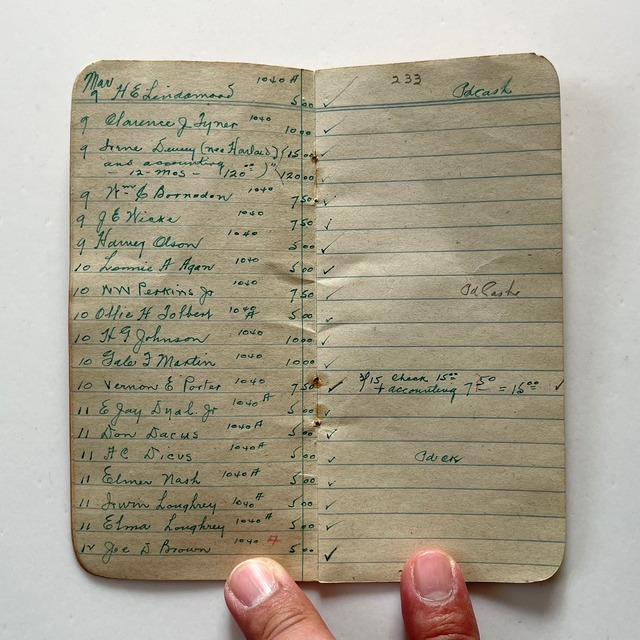 Mar
9 H E Lindamood 1040 A 5 00 ✓
9 Clarence J Tyner 1040 10 00 ✓
9 Irene Dewey (nee Harlard) 15 00 ✓
and accounting
- 12 - Mos - (120 00) " 120 00
9 Wm E Bornodon 1040 7 50 ✓
9 J E Wicke 1040 7 50 ✓
9 Harvey Olson 1040 5 00 ✓
10 Lonnie A Agan 1040 5 00 ✓
10 NW Perkins Jr 1040 7 50 ✓
10 Ollie H Tolbert 1040 A 5 00 ✓
10 H G Johnson 1040 10 00 ✓
10 Gale F Martin 1040 10 00 ✓
10 Vernon E Porter 1040 7 50 ✓
11 E Jay Dyal. Jr 1040 A 5 00 ✓
11 Don Dacus 1040 A 5 00 ✓
11 A C Dicus 1040 A 5 00 ✓
11 Elmer Nash 1040 A 5 00 ✓
11 Irwin Loughrey 1040 A 5 00 ✓
11 Elma Loughrey 1040 A 5 00 ✓
12 Joe D Brown 1040 A 5 00 ✓
233
Pd Cash
Pd Cash
3/15 check 15 00
+ accounting 7 50 = 15 00 ✓
Pd ck